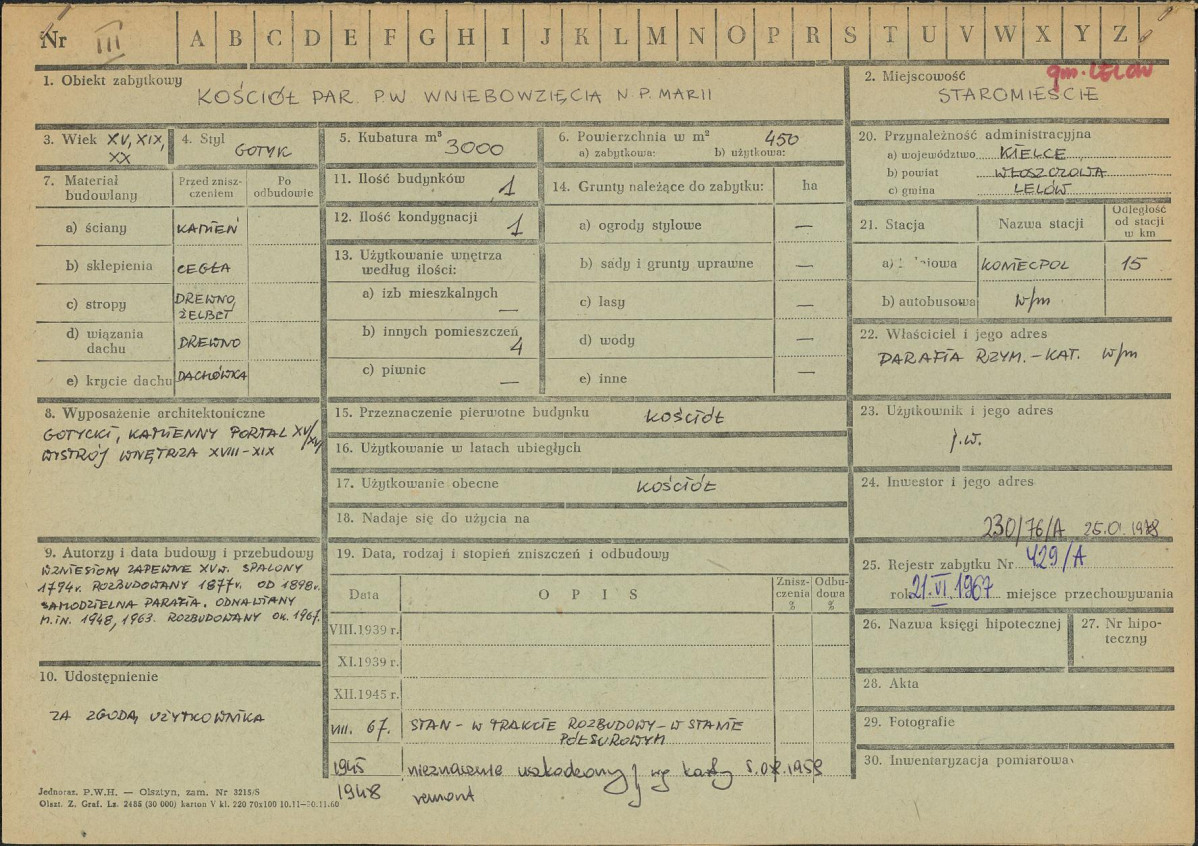 Nr III A B C D E F G H I J K L M N O P R S T U V W X Y Z
1. Obiekt zabytkowy
KOŚCIÓŁ PAR. P.W WNIEBOWZIĘCIA N P. MARII
2. Miejscowość gm. LELÓW
STAROMIEŚCIE
3. Wiek XV, XIX,
XX
4. Styl
GOTYK
5. Kubatura m³ 3000
6. Powierzchnia w m² 450
a) zabytkowa: b) użytkowa:
7. Materiał budowlany
Przed znisz-
czeniem
Po
odbudowie
a) ściany KAMIEŃ
b) sklepienia CEGŁA
c) stropy DREWNO,
ŻELBET
d) wiązania
dachu DREWNO
e) krycie dachu DACHÓWKA
8. Wyposażenie architektoniczne
GOTYCKI, KAMIENNY PORTAL XV/XVI
WYSTRÓJ WNĘTRZA XVIII-XIX
9. Autorzy i data budowy i przebudowy
WZNIESIONY ZAPEWNE XV w. SPALONY
1794 r. ROZBUDOWANY 1877 r. OD 1898 r.
SAMODZIELNA PARAFIA. ODNAWIANY
M.IN. 1948, 1963. ROZBUDOWANY OK. 1967.
10. Udostępnienie
ZA ZGODĄ UŻYTKOWNIKA
11. Ilość budynków 1
12. Ilość kondygnacji 1
13. Użytkowanie wnętrza
według ilości:
a) izb mieszkalnych —
b) innych pomieszczeń 4
c) piwnic —
14. Grunty należące do zabytku: ha
a) ogrody stylowe —
b) sady i grunty uprawne —
c) lasy —
d) wody —
e) inne —
15. Przeznaczenie pierwotne budynku KOŚCIÓŁ
16. Użytkowanie w latach ubiegłych
17. Użytkowanie obecne KOŚCIÓŁ
18. Nadaje się do użycia na
19. Data, rodzaj i stopień zniszczeń i odbudowy
Data OPIS Znisz-
czenia
% Odbu-
dowa
%
VIII.1939 r.
XI.1939 r.
XII.1945 r.
VIII. 67. STAN - W TRAKCIE ROZBUDOWY - W STANIE
PÓŁSUROWYM
1945 nieznacznie uszkodzony wg karty
1948 remont
20. Przynależność administracyjna
a) województwo KIELCE
b) powiat WŁOSZCZOWA
c) gmina LELÓW
21. Stacja Nazwa stacji Odległość
od stacji
w km
KONIECPOL 15
b) autobusowa w/m
22. Właściciel i jego adres
PARAFIA RZYM.-KAT. w/m
23. Użytkownik i jego adres
j.w.
24. Inwestor i jego adres
230/76/A
25. Rejestr zabytku Nr 429/A
rok 21.VI.1967 miejsce przechowywania
26. Nazwa księgi hipotecznej
27. Nr hipo-
teczny
28. Akta
29. Fotografie
30. Inwentaryzacja pomiarowa
Jednoraz. P.W.H. — Olsztyn, zam. Nr 3215/S
Olszt. Z. Graf. Lz. 2485 (30 000) karton V kl. 220 70x100